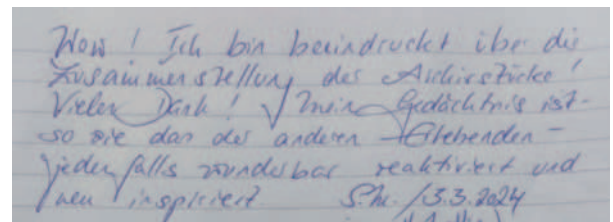 Wow! Ich bin beeindruckt über die
Zusammenstellung der Archivstücke!
Vielen Dank! Mein Gedächtnis ist -
so wie das der anderen -
jedenfalls wunderbar reaktiviert und
neu inspiriert 3.3.2024